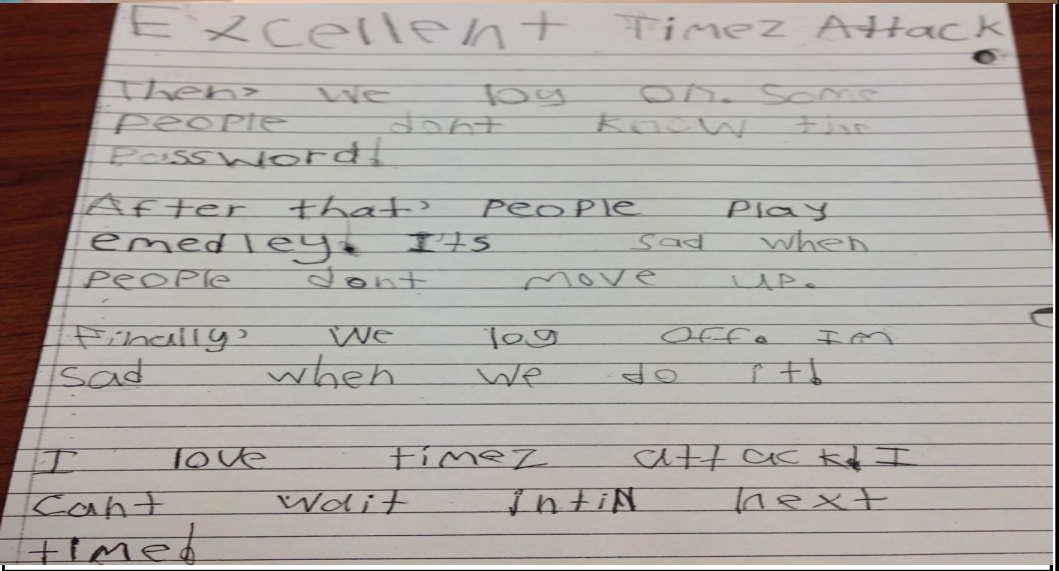 Excellent Timez Attack
Then, we log on. Some
people dont know the
password!
After that, people play
emedley. Its sad when
people dont move up.
Finally, we log off. Im
sad when we do it!
I love timez attack! I
cant wait intill next
time!